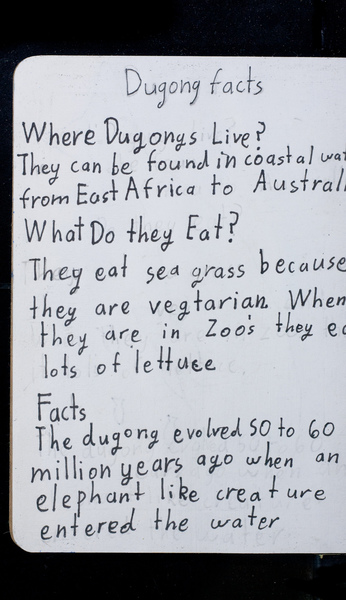 Dugong facts
Where Dugongs Live?
They can be found in coastal wat
from East Africa to Austral
What Do they Eat?
They eat sea grass because
they are vegtarian When
they are in Zoo's they ea
lots of lettuce
Facts
The dugong evolved 50 to 60
million years ago when an
elephant like creature
entered the water